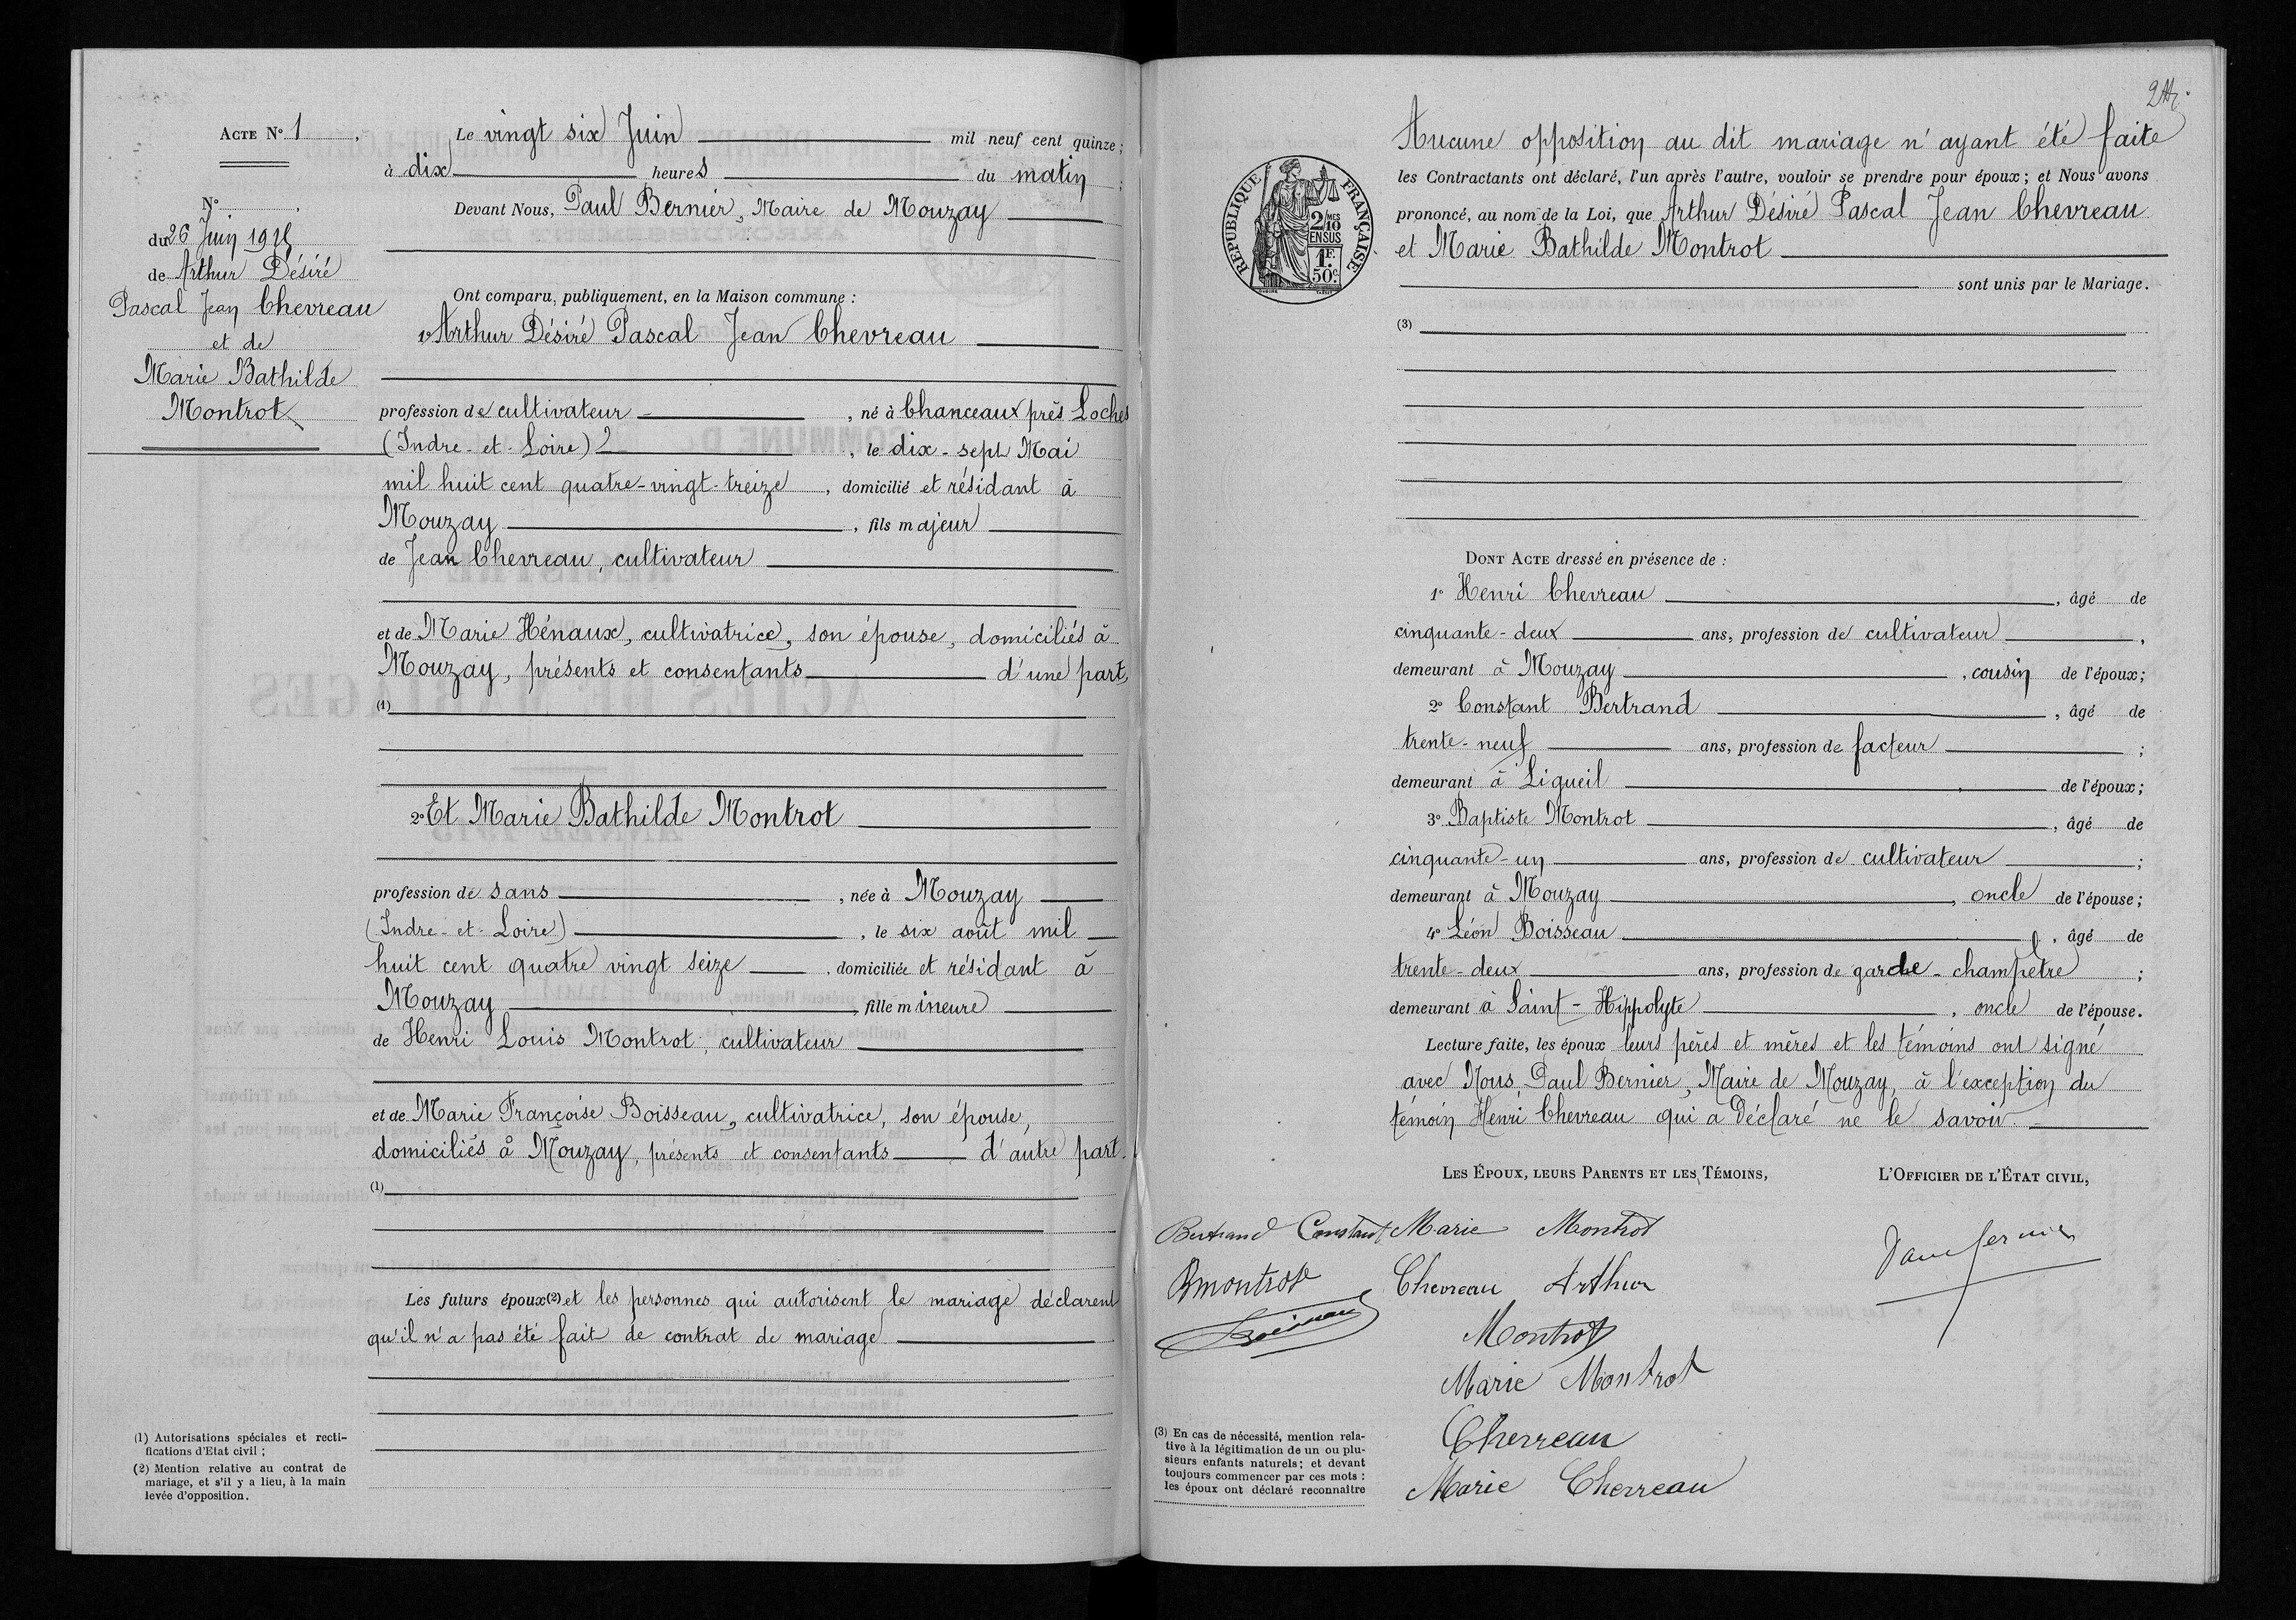 ACTE N° 1
N°
du 26 Juin 1915
de Arthur Désiré
Pascal Jean Chevreau
et de
Marie Bathilde
Montrot
Le vingt six Juin mil neuf cent quinze ;
à dix heures du matin ;
Devant Nous, Paul Bernier, Maire de Mouzay
Ont comparu, publiquement, en la Maison commune :
1° Arthur Désiré Pascal Jean Chevreau
profession de cultivateur , né à Chanceaux près Loches
(Indre-et-Loire) , le dix-sept Mai
mil huit cent quatre-vingt-treize , domicilié et résidant à
Mouzay , fils majeur
de Jean Chevreau, cultivateur
et de Marie Hénaux, cultivatrice, son épouse, domiciliés à
Mouzay, présents et consentants d'une part,
(1)
2° Et Marie Bathilde Montrot
profession de sans , née à Mouzay
(Indre-et-Loire) , le six août mil
huit cent quatre vingt seize , domiciliée et résidant à
Mouzay , fille mineure
de Henri Louis Montrot, cultivateur
et de Marie Françoise Boisseau, cultivatrice, son épouse,
domiciliés à Mouzay, présents et consentants d'autre part.
(1)
Les futurs époux (2) et les personnes qui autorisent le mariage déclarent
qu'il n'a pas été fait de contrat de mariage
(1) Autorisations spéciales et recti-
fications d'Etat civil ;
(2) Mention relative au contrat de
mariage, et s'il y a lieu, à la main
levée d'opposition.
RÉPUBLIQUE FRANÇAISE
2/10 MES
EN SUS
1F.
50c.
Aucune opposition au dit mariage n'ayant été faite
les Contractants ont déclaré, l'un après l'autre, vouloir se prendre pour époux ; et Nous avons
prononcé, au nom de la Loi, que Arthur Désiré Pascal Jean Chevreau
et Marie Bathilde Montrot
sont unis par le Mariage.
(3)
DONT ACTE dressé en présence de :
1° Henri Chevreau , âgé de
cinquante-deux ans, profession de cultivateur ,
demeurant à Mouzay , cousin de l'époux ;
2° Constant Bertrand , âgé de
trente-neuf ans, profession de facteur ;
demeurant à Ligueil , de l'époux ;
3° Baptiste Montrot , âgé de
cinquante-un ans, profession de cultivateur ;
demeurant à Mouzay , oncle de l'épouse ;
4° Léon Boisseau , âgé de
trente-deux ans, profession de garde-champêtre ;
demeurant à Saint-Hippolyte , oncle de l'épouse.
Lecture faite, les époux leurs pères et mères et les témoins ont signé
avec Nous Paul Bernier, Maire de Mouzay, à l'exception du
témoin Henri Chevreau qui a déclaré ne le savoir.
LES ÉPOUX, LEURS PARENTS ET LES TÉMOINS,
L'OFFICIER DE L'ÉTAT CIVIL,
Bertrand Constant Marie Montrot
Bmontrot Chevreau Arthur
Paul Bernier
Boisseau Montrot
Marie Montrot
Chevreau
Marie Chevreau
(3) En cas de nécessité, mention rela-
tive à la légitimation de un ou plu-
sieurs enfants naturels ; et devant
toujours commencer par ces mots :
les époux ont déclaré reconnaître